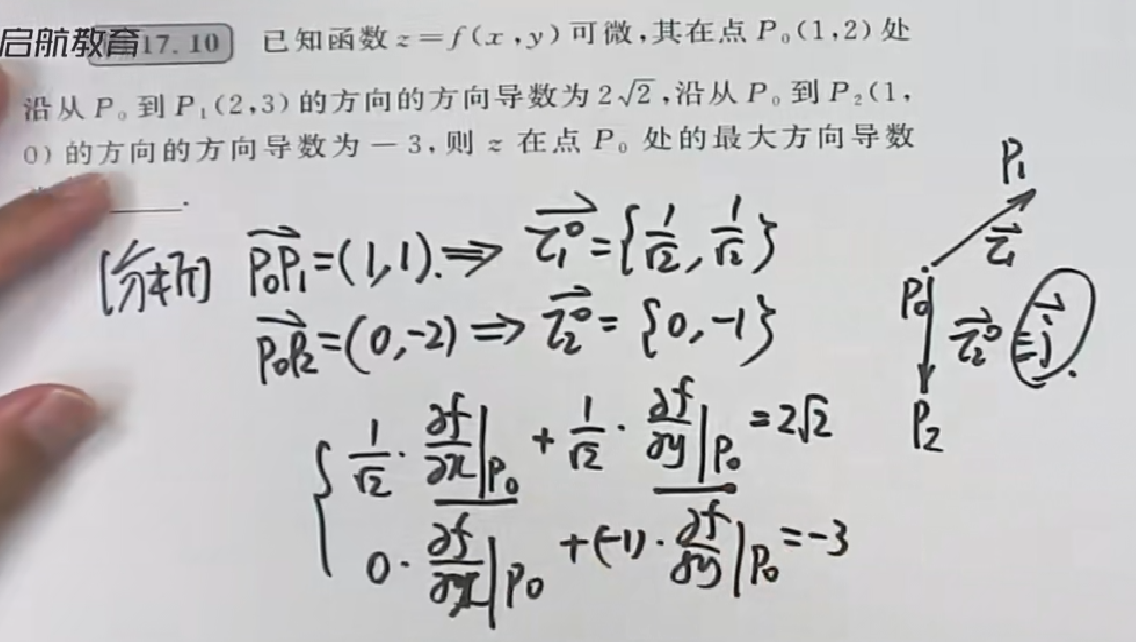 启航教育 17.10 已知函数 z=f(x,y)可微,其在点 P₀(1,2)处
沿从 P₀ 到 P₁(2,3)的方向的方向导数为 2√2,沿从 P₀ 到 P₂(1,
0)的方向的方向导数为 −3,则 z 在点 P₀ 处的最大方向导数
____.
[分析] P₀P₁→=(1,1).⇒ τ₁⁰→={1/√2, 1/√2}
P₀P₂→=(0,-2)⇒ τ₂⁰→={0,-1}
{ 1/√2·∂f/∂x|P₀ + 1/√2·∂f/∂y|P₀ =2√2
0·∂f/∂x|P₀ +(-1)·∂f/∂y|P₀ =-3
P₁
τ₁→
P₀
τ₂⁰→ =j→.
P₂